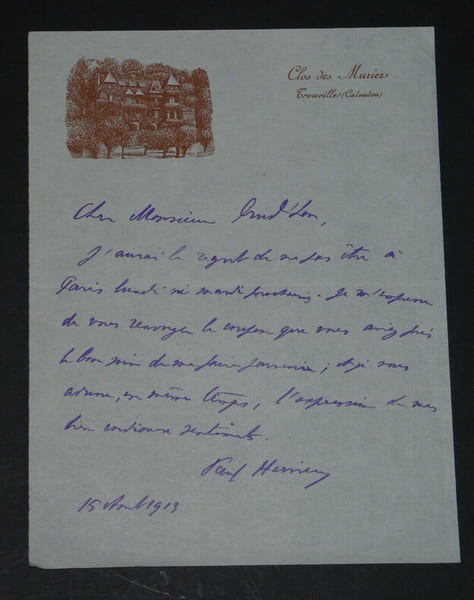 Clos des Muriers
Trouville (Calvados)
Cher Monsieur
J'aurai le regret de ne pas être à
Paris lundi ni mardi prochains. Je m'empresse
de vous renvoyer le coupon que vous aviez pris
le bon soin de me faire parvenir ; et je vous
adresse, en même temps, l'expression de mes
bien cordiaux sentiments.
Paul Hervieu
15 Août 1913